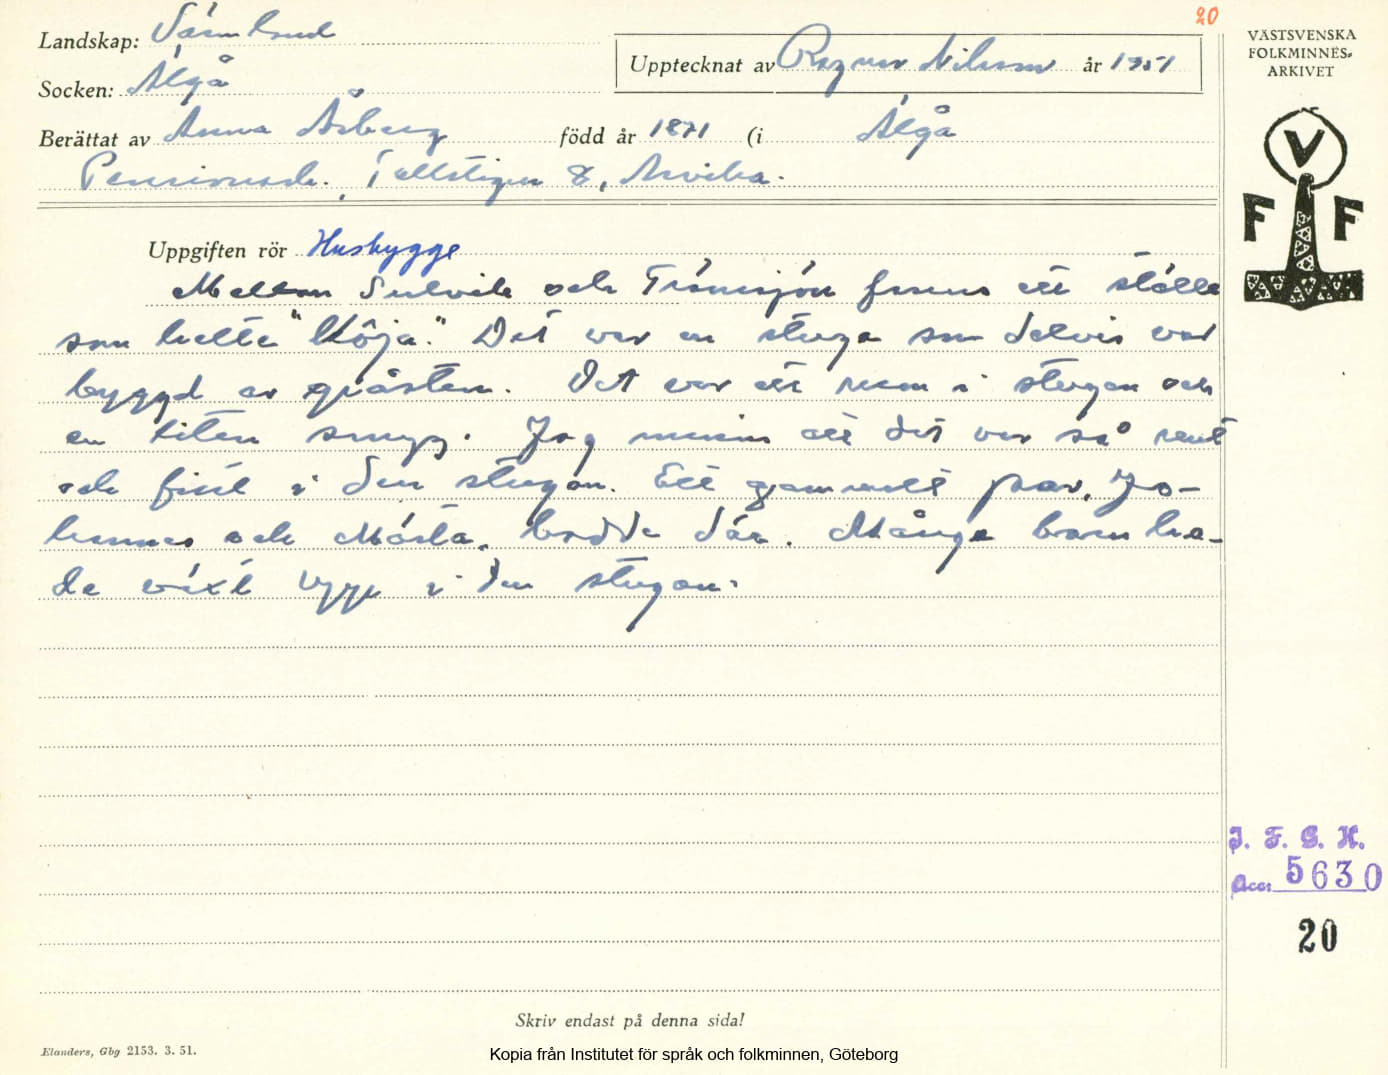 20
Landskap: Värmland
Upptecknat av Ragnar Nilsson år 1951
Socken: Älgå
Berättat av Anna Åsberg född år 1871 (i Älgå
Pensionsh. Tallstigen 8, Arvika.
Uppgiften rör Husbygge
Mellan Sulvik och Tränsjön finns ett ställe
som hette "Köja". Det var en stuga som delvis var
byggd av gråsten. Det var ett rum i stugan och
en liten snugg. Jag minns att det var så rent
och fint i den stugan. Ett gammalt par, Jo-
hannes och Märta, bodde där. Många barn ha-
de växt upp i den stugan.
VÄSTSVENSKA
FOLKMINNES-
ARKIVET
V
F F
I. F. G. H.
Acc: 5630
20
Skriv endast på denna sida!
Elanders, Gbg 2153. 3. 51.
Kopia från Institutet för språk och folkminnen, Göteborg